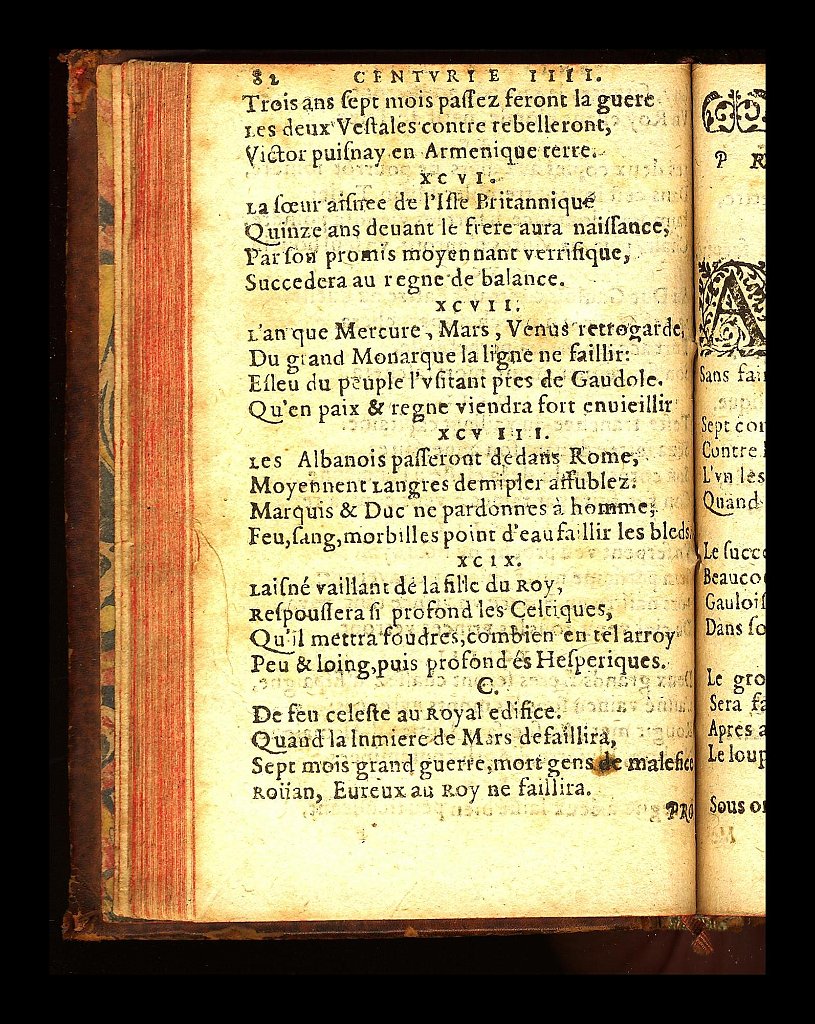 82 CENTVRIE IIII.
Trois ans ſept mois paſſez feront la guere
Les deux Veſtales contre rebelleront,
Victor puiſnay en Armenique terre.
XCVI.
La ſœur aiſnee de l'Iſle Britannique
Quinze ans deuant le frere aura naiſſance,
Par ſon promis moyennant verrifique,
Succedera au regne de balance.
XCVII.
L'an que Mercure, Mars, Venus retrogarde,
Du grand Monarque la ligne ne faillir:
Eſleu du peuple l'vſitant pres de Gaudole.
Qu'en paix & regne viendra fort enuieillir
XCVIII.
Les Albanois paſſeront dedans Rome,
Moyennent Langres demipler affublez:
Marquis & Duc ne pardonnes à homme,
Feu, ſang, morbilles point d'eau faillir les bleds.
XCIX.
Laiſné vaillant de la fille du Roy,
Reſpouſſera ſi profond les Celtiques,
Qu'il mettra foudres, combien en tel arroy
Peu & loing, puis profond és Heſperiques.
C.
De feu celeſte au Royal edifice.
Quand la lnmiere de Mars defaillira,
Sept mois grand guerre, mort gens de malefice
Roüan, Eureux au Roy ne faillira.
PRO
P R
A
Sans fai
Sept con
Contre
L'vn les
Quand
Le ſucce
Beauco
Gauloiſ
Dans ſo
Le gro
Sera fa
Apres a
Le loup
Sous or